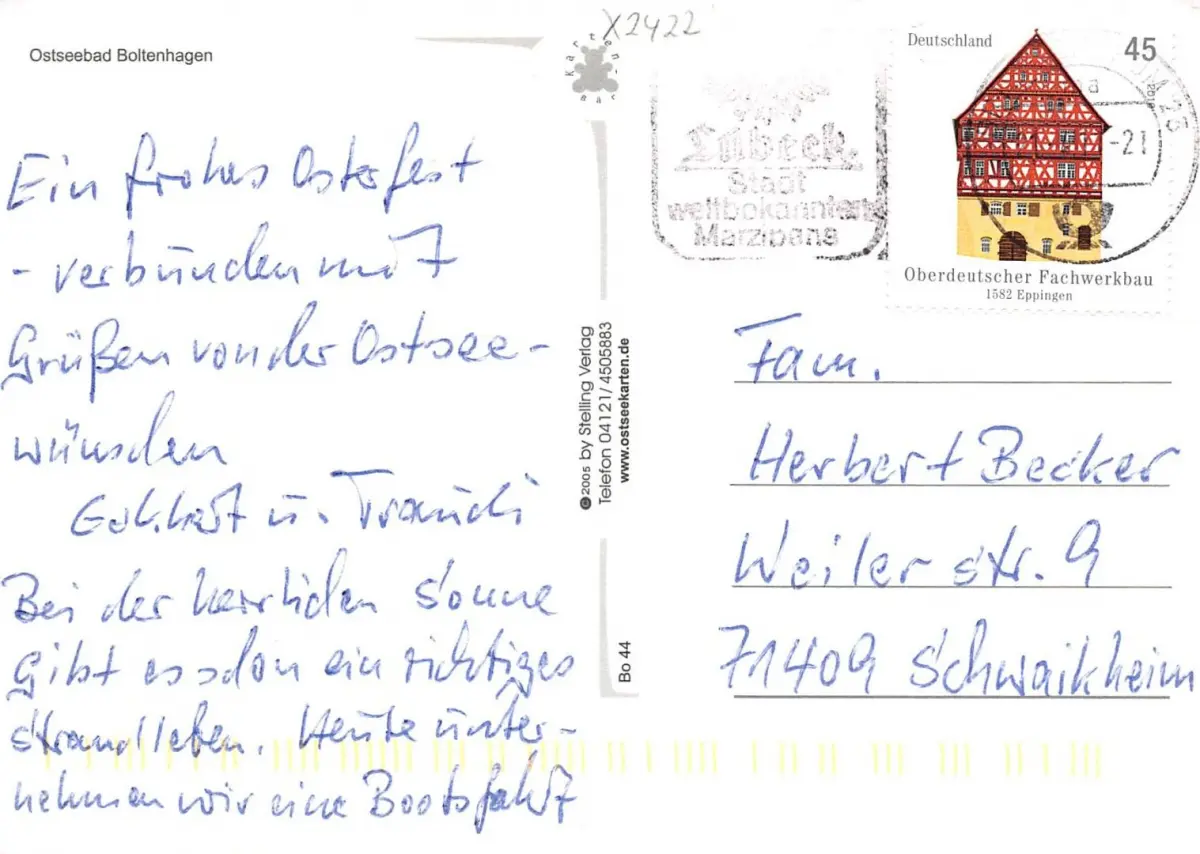 Ostseebad Boltenhagen
X2422
Karten-
Bär
Lübeck
Stadt
weltbekannten
Marzipans
Deutschland
45
-21
Oberdeutscher Fachwerkbau
1582 Eppingen
Ein frohes Osterfest
- verbunden mit
Grüßen von der Ostsee -
wünschen
Eckhart u. Traudi
Bei der herrlichen Sonne
gibt es schon ein richtiges
Strandleben. Heute unter-
nehmen wir eine Bootsfahrt
©2005 by Stelling Verlag
Telefon 04121/4505883
www.ostseekarten.de
Bo 44
Fam.
Herbert Becker
Weiler str. 9
71409 Schwaikheim